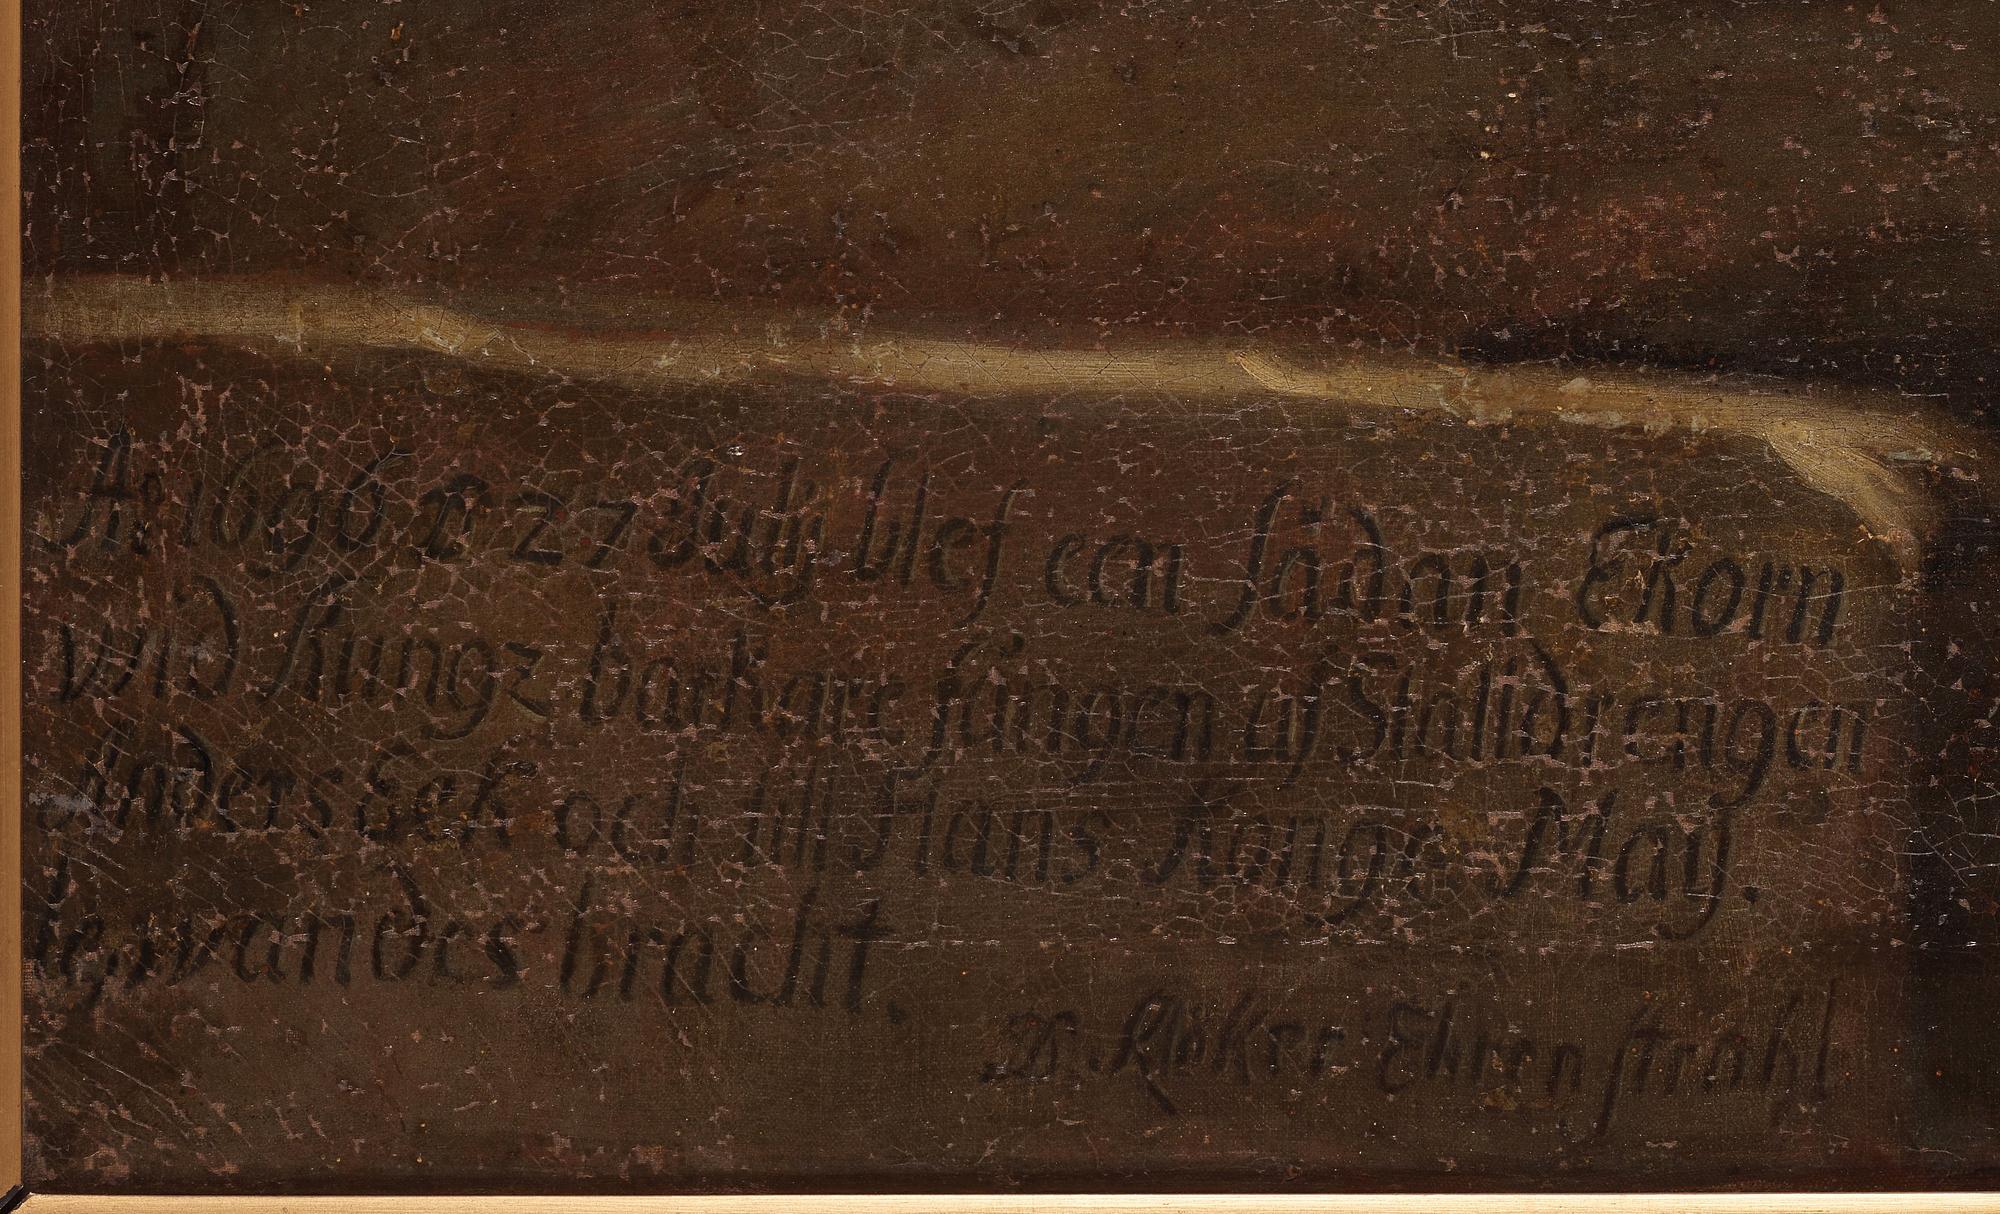 Ao 1696 D 27 Julij blef een sådan Ekorn
wid Kungz backare fången af Stalldrengen
Anders Eek och till Hans Konge May.
lewandes bracht.
D. Klöker Ehrenstrahl